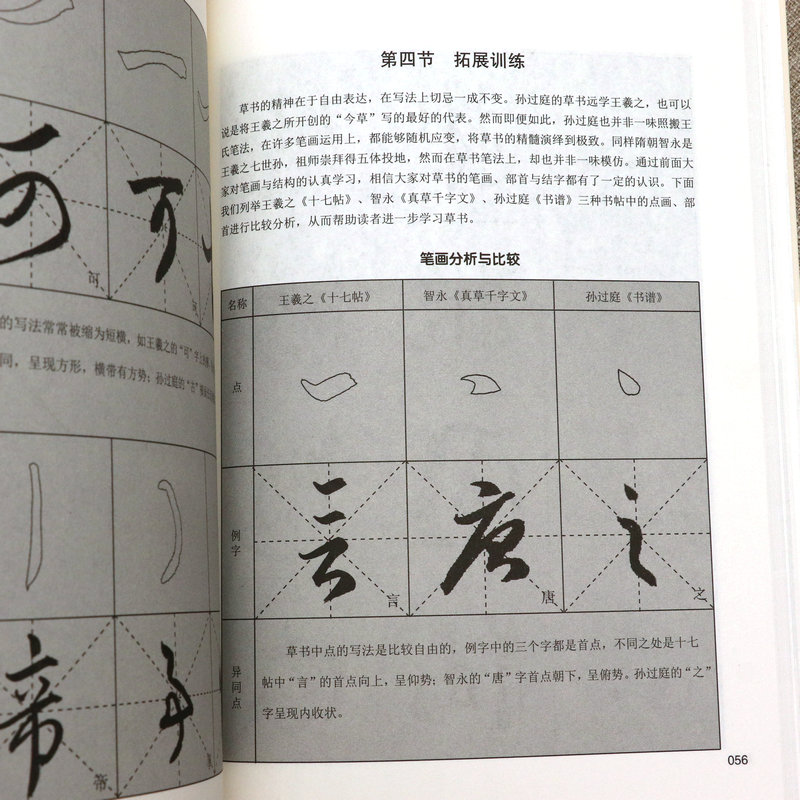 可
可
的写法常常被缩为短横，如王羲之的“可”字
同，呈现方形，横带有方势；孙过庭的“吉”
帝
帝
第四节 拓展训练
草书的精神在于自由表达，在写法上切忌一成不变。孙过庭的草书远学王羲之，也可以
说是将王羲之所开创的“今草”写的最好的代表。然而即便如此，孙过庭也并非一味照搬王
氏笔法，在许多笔画运用上，都能够随机应变，将草书的精髓演绎到极致。同样隋朝智永是
王羲之七世孙，祖师崇拜得五体投地，然而在草书笔法上，却也并非一味模仿。通过前面大
家对笔画与结构的认真学习，相信大家对草书的笔画、部首与结字都有了一定的认识。下面
我们列举王羲之《十七帖》、智永《真草千字文》、孙过庭《书谱》三种书帖中的点画、部
首进行比较分析，从而帮助读者进一步学习草书。
笔画分析与比较
名称 王羲之《十七帖》 智永《真草千字文》 孙过庭《书谱》
点
例字 言 唐 之
言 唐 之
异同点
草书中点的写法是比较自由的，例字中的三个字都是首点，不同之处是十七
帖中“言”的首点向上，呈仰势；智永的“唐”字首点朝下，呈俯势。孙过庭的“之”
字呈现内收状。
056